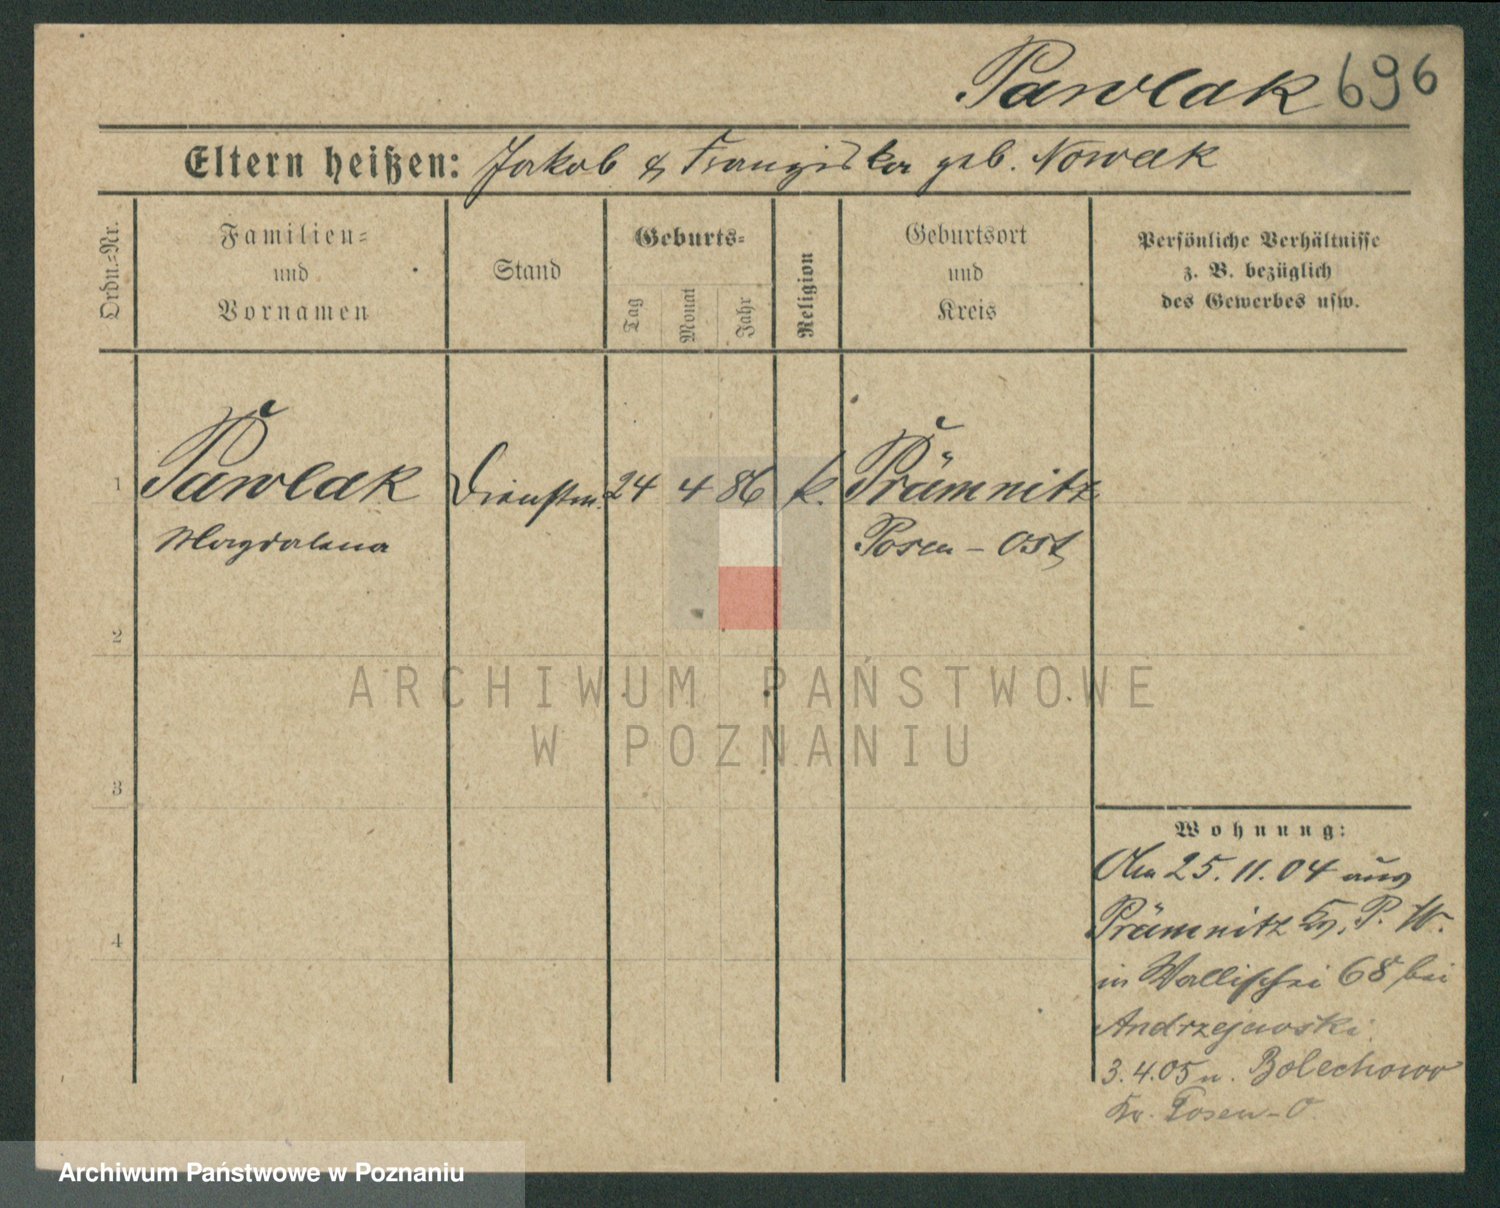 Pawlak 696
Eltern heißen: Jakob & Franziska geb. Nowak
Ordn.=Nr.
Familien=
und
Vornamen
Stand
Geburts=
Tag
Monat
Jahr
Religion
Geburtsort
und
Kreis
Persönliche Verhältnisse
z. B. bezüglich
des Gewerbes usw.
1 Pawlak Dienstm. 24 4 86 k. Prämnitz
Magdalena Posen - Ost
2
3
4
Wohnung:
Am 25. 11. 04 aus
Prämnitz Kr. P. W.
in Wallischei 68 bei
Andrzejewski
3. 4. 05 n. Bolechowo
Kr. Posen-O
ARCHIWUM PAŃSTWOWE
W POZNANIU
Archiwum Państwowe w Poznaniu